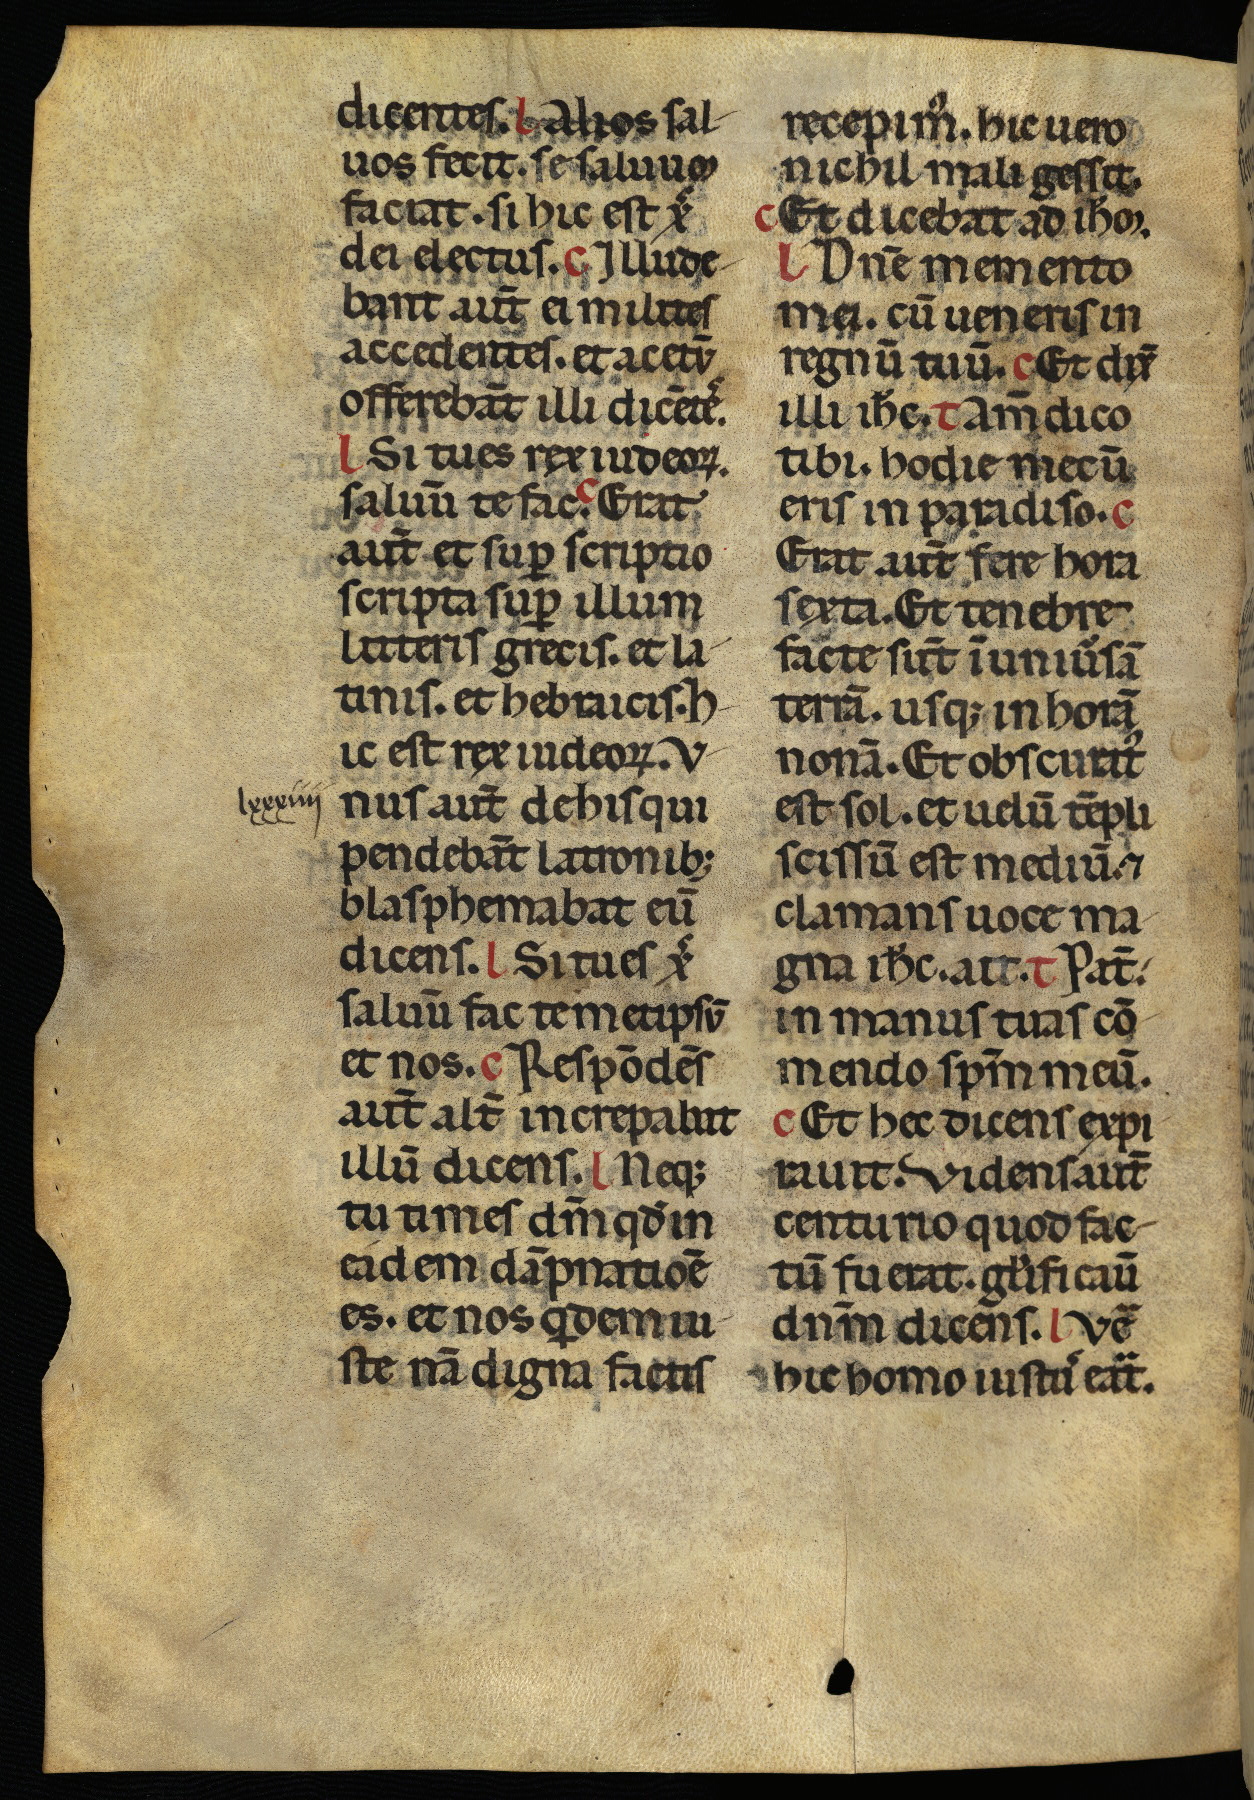 dicentes. l Alios sal-
uos fecit. se saluuꝫ
faciat. si hic est xͨ
dei electus. c Illude-
bant aut̄ ei milites
accedentes. et acetū
offerebāt illi dicētẽ.
l Si tu es rex iudeoꝝ.
saluū te fac. c Erat
aut̄ et suꝑ scriptio
scripta suꝑ illum
litteris grecis. et la-
tinis. et hebraicis. h-
ic est rex iudeoꝝ. V-
lxxxiiii
nus aut̄ de his qui
pendebāt latronib;
blasphemabat eū
dicens. l Si tu es xͨ
saluū fac temetipsū
et nos. c Respōdēs
aut̄ alt̄ increpabat
illū dicens. l Neq;
tu times dm̄ qđ in
eadem dāpnatioē
es. et nos qͥdem iu-
ste nā digna factis
recepimꝰ. hic uero
nichil mali gessit.
c Et dicebat ad ih̄oꝫ.
l Dn̄e memento
mei. cū ueneris in
regnū tuū. c Et dix̄
illi ih̄c. t Am̄ dico
tibi. hodie mecū
eris in paradiso. c
Erat aut̄ fere hora
sexta. Et tenebre
facte sūt ī uniu̾sā
terrā. usq; in horā
nonā. Et obscuratꝰ
est sol. et uelū tēpli
scissū est mediū. ⁊
clamans uoce ma-
gna ih̄c. ait. t Pat̄.
in manus tuas cō-
mendo sp̄m meū.
c Et hec dicens expi
rauit. Videns aut̄
centurio quod fac-
tū fuerat. gl̄ificauͭ
dn̄m dicens. l Ve̾
hic homo iustꝰ eat̾.